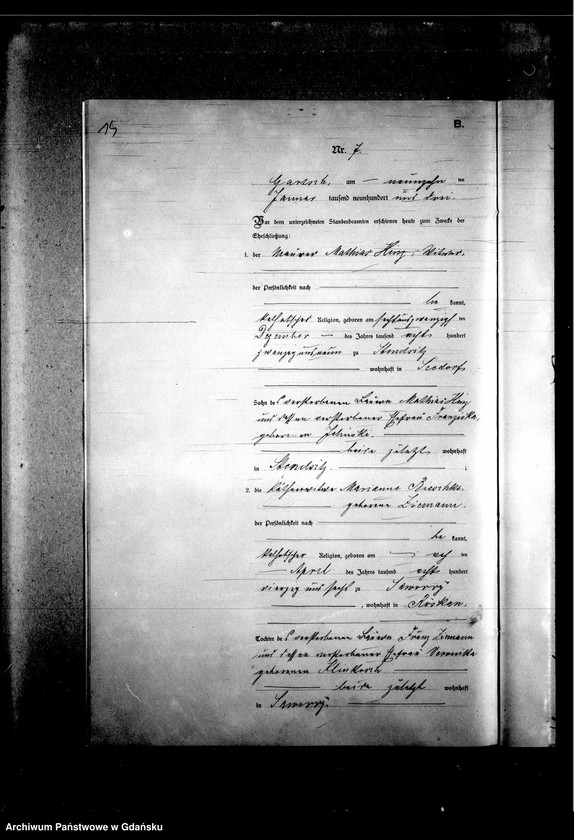 15
B.
Nr. 7.
Gartsch, am — neunzehn ten
Januar tausend neunhundert und drei
Vor dem unterzeichneten Standesbeamten erschienen heute zum Zwecke der
Eheschließung:
1. der Maurer Mathias Hinz, Witwer.
der Persönlichkeit nach
be kannt,
katholischer Religion, geboren am sechsundzwanzigsten
Dezember — des Jahres tausend acht hundert
zu Stendsitz
wohnhaft in Seedorf
Sohn des verstorbenen Mathias Hinz
und dessen verstorbener Ehefrau Franziska,
geborenen
beide zuletzt wohnhaft
in Stendsitz ;
2. die Marianna
geborene Ziemann.
der Persönlichkeit nach
be kannt,
katholischer Religion, geboren am ten
April des Jahres tausend acht hundert
vierzig und sechs zu
, wohnhaft in
Tochter des verstorbenen Franz Ziemann
und dessen verstorbener Ehefrau Veronika
geborenen
beide zuletzt wohnhaft
in
Archiwum Państwowe w Gdańsku